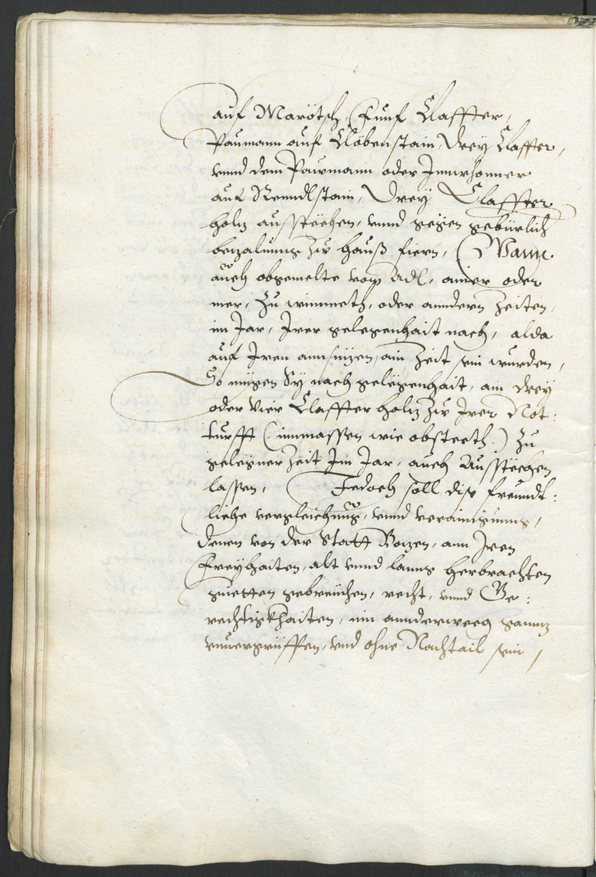 auf Marötsch, Funf Claffter,
Paumann auf Clöbenstain Drey Claffter,
vnnd dem Paumann oder Innwhonner
auf Remdlstain, Drey Claffter
holtz aussteckhen, vnnd gegen gebürlich
betzalunng zu hauß fieren, Wann
auch obgemelte vom Adl, ainer oder
mer, zu wimmeth, oder anndern Zeiten,
im Jar, Irer gelegenhait nach, alda
auf Iren annsitzen, ain Zeit sein wurden,
So mugen Sy nach gelegenhait, ain Drey
oder Vier Claffter holtz zu Irer Not:
turfft (:inmassen wie obsteeth:) zu
gelegner Zeit Im Jar, auch Aussteckhen
lassen, Jedoch soll dise freundt:
liche vergleichung, vnnd verainigunng,
denen von der Statt Botzen, ann Iren
Freyhaiten, alt vnnd lanng herbrachten
guetten gebreüchen, recht, vnnd Ge:
rechtigkhaiten, im annderweeg ganntz
vnuergriffen, vnd ohne Nachtail sein,